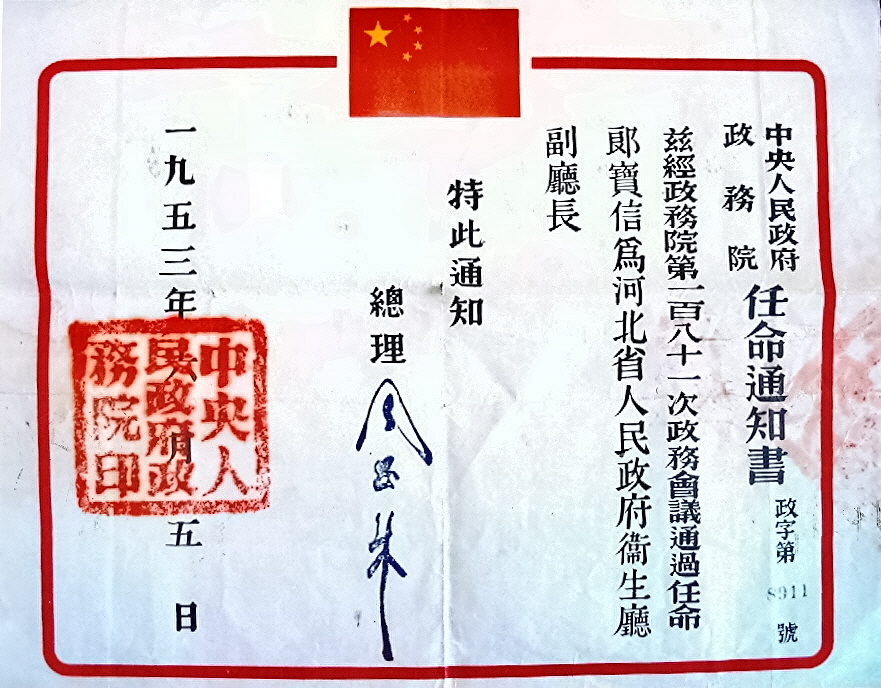 中央人民政府
政務院
任命通知書
政字第8911號
茲經政務院第一百八十一次政務會議通過任命
郞寶信爲河北省人民政府衞生廳
副廳長
特此通知
總理 周恩來
一九五三年六月五日
中央人民政府政務院印